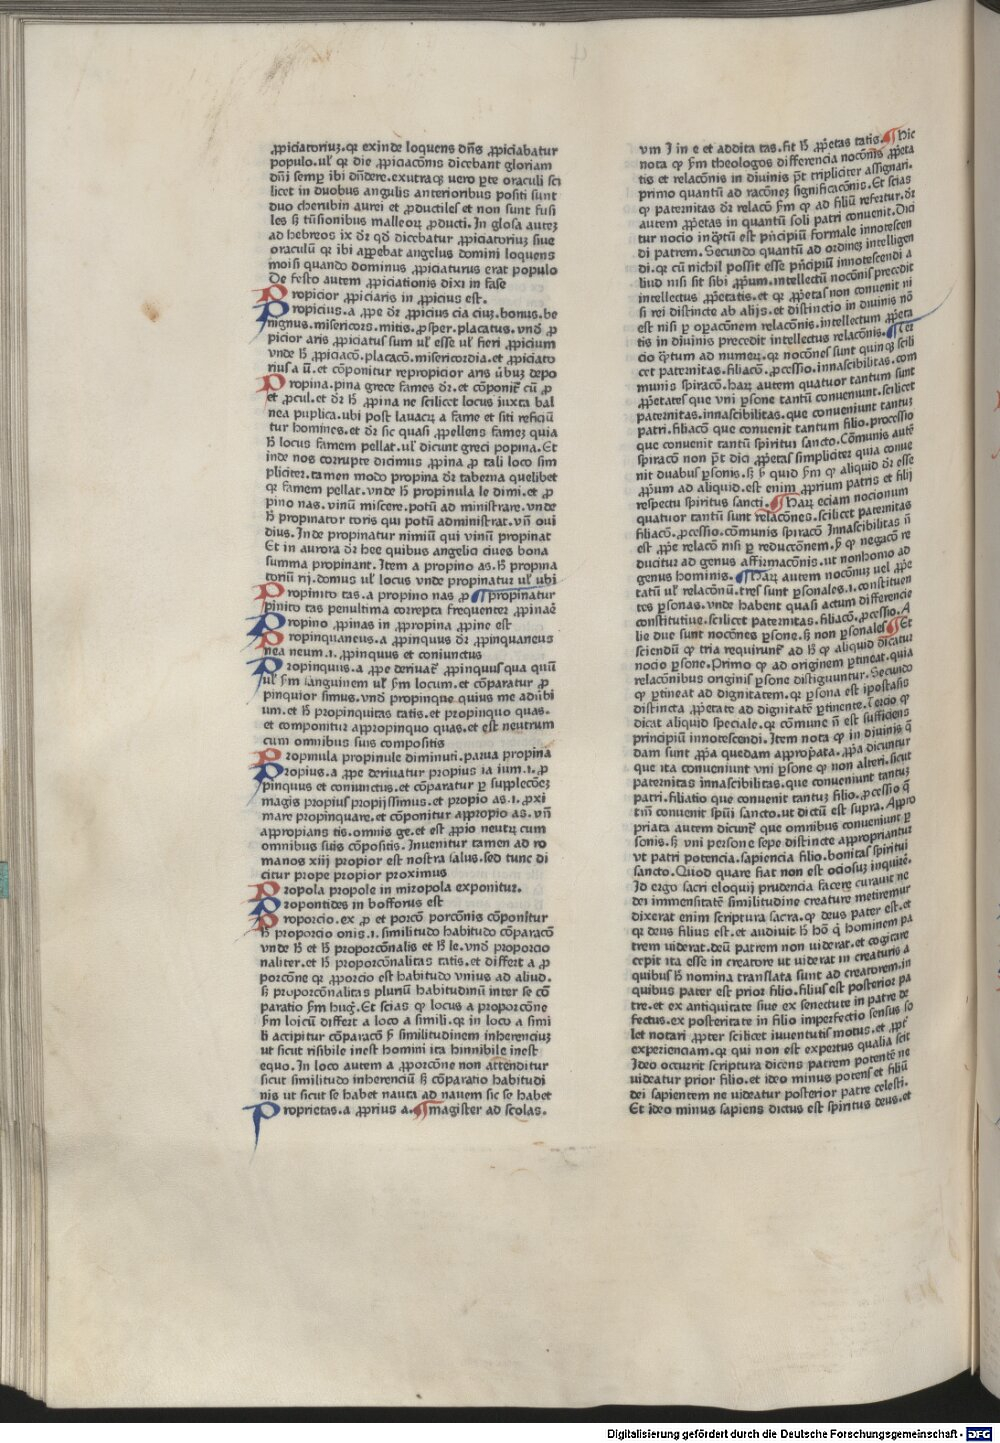 ꝓpiciatoriuꝫ. qꝛ exinde loquens dn̄s ꝓpiciabatur
populo. ul' qꝛ die ꝓpiciacōnis dicebant gloriam
dn̄i semꝑ ibi dn̄dere. ex utraqꝫ uero ꝑte oraculi sci
licet in duobus angulis anterioribus positi sunt
duo cherubin aurei et ꝓductiles et non sunt fusi
les sꝫ tūsionibus malleoꝝ ꝓducti. In glosa auteꝫ
ad hebreos ix dr̄ qd' dicebatur ꝓpiciatoriuꝫ siue
oraculū qꝛ ibi apꝑebat angelus domini loquens
moisi quando dominus ꝓpiciaturus erat populo
De festo autem ꝓpiciationis dixi in fase
Propicior ꝓpiciaris in ꝓpicius est.
Propicius. a ꝓpe dr̄ ꝓpicius cia ciuꝫ. bonus. be
nignus. misericors. mitis. ꝓsper. placatus. vnd' ꝓ
picior aris ꝓpiciatus sum ul' esse ul' fieri ꝓpicium
vnde h̄ ꝓpiciacō. placacō. misericordia. et ꝓpiciato
rius a ū. et cōponitur repropicior aris ūbuꝫ depo
Propina. pina grece fames dr̄. et cōponit̄ cū ꝓ
et ꝓcul. et dr̄ h̄ ꝓpina ne scilicet locus iuxta bal
nea puplica. ubi post lauacꝝ a fame et siti reficiū
tur homines. et dr̄ sic quasi ꝓpellens fameꝫ quia
h̄ locus famem pellat. ul' dicunt greci popina. Et
inde nos corrupte dicimus ꝓpina ꝓ tali loco sim
pliciter. tamen modo propina dr̄ taberna quelibet
qꝛ famem pellat. vnde h̄ propinula le dimi. et ꝓ
pino nas. vinū miscere. potū ad ministrare. vnde
h̄ propinator toris qui potū administrat. vn̄ oui
dius. Inde propinatur nimiū qui vinū propinat
Et in aurora dr̄ hec quibus angelica ciues bona
summa propinant. Item a propino as. h̄ propina
toriū rij. domus ul' locus vnde propinatur ul' ubi
Propinito tas. a propino nas ꝓ ¶ propinatur
pinito tas penultima correpta frequenter ꝓpinaē
Propino ꝓpinas in ꝓpropina ꝓpine est
Propinquaneus. a ꝓpinquus dr̄ ꝓpinquaneus
nea neum. i. ꝓpinquus et coniunctus
Propinquus. a ꝓpe deriuat̄ ꝓpinquus qua quū
ul' ẜm sanguinem ul' ẜm locum. et cōparatur ꝓ
pinquior simus. vnd' propinque quius me adūbi
um. et h̄ propinquitas tatis. et propinquo quas.
et componitur appropinquo quas. et est neutrum
cum omnibus suis compositis
Propinula propinule diminuti. parua propina
Propius. a ꝓpe deriuatur propius ia ium. i. ꝓ
pinquus et coniunctus. et cōparatur ꝑ supplecōeꝫ
magis propius propijssimus. et propio as. i. ꝓxi
mare propinquare. et cōponitur appropio as. vn̄
appropians tis. omnis ge. et est ꝓpio neutꝝ cum
omnibus suis cōpositis. Inuenitur tamen ad ro
manos xiij propior est nostra salus. sed tunc di
citur prope propior proximus
Propola propole in miropola exponitur.
Propontides in bofforus est
Proporcio. ex ꝓ et porcō porcōnis cōponitur
h̄ proporcio onis. i. similitudo habitudo cōparacō
vnde h̄ et h̄ proporcōnalis et h̄ le. vnd' proporcio
naliter. et h̄ proporcōnalitas tatis. et differt a ꝓ
porcōne qꝛ ꝓporcio est habitudo vnius ad aliud.
sꝫ proporcōnalitas pluriū habitudinū inter se cō
paratio ẜm hug'. Et scias ꝙ locus a proporcōne
ẜm loicū differt a loco a simili. qꝛ in loco a simi
li accipitur cōparacō ẜ similitudinem inherenciuꝫ
ut sicut risibile inest homini ita hinnibile inest
equo. In loco autem a ꝓporcōne non attenditur
sicut similitudo inherenciū sꝫ cōparatio habitudi
nis ut sicut se habet nauta ad nauem sic se habet
Proprietas. a ꝓprius a. ¶ magister ad scolas.
vm I in e et addita tas. fit h̄ ꝓp̄etas tatis. ¶ Hic
nota ꝙ ẜm theologos differencia nocōnis ꝓp̄eta
tis et relacōnis in diuinis pōt tripliciter assignari.
primo quantū ad racōneꝫ significacōnis. Et scias
ꝙ paternitas dr̄ relacō ẜm ꝙ ad filiū refertur. dr̄
autem ꝓp̄etas in quantū soli patri conuenit. Dici
tur nocio inq̄tū est pn̄cipiū formale innotescen
di patrem. Secundo quantū ad ordineꝫ intelligen
di. qꝛ cū nichil possit esse pn̄cipiū innotescendi a
liud nisi sit sibi ꝓpium. intellectū nocōnis precedit
intellectus ꝓp̄etatis. et qꝛ ꝓp̄etas non conuenit ni
si rei distincte ab alijs. et distinctio in diuinis nō
est nisi ꝑ oꝑacōnem relacōnis. intellectum ꝓp̄eta
tis in diuinis precedit intellectus relacōnis. ¶ Ter
cio q̄tum ad numeꝝ. qꝛ nocōnes sunt quinqꝫ scili
cet paternitas. filiacō. ꝓcessio. innascibilitas. com
munis spiracō. Haꝝ autem quatuor tantum sunt
ꝓp̄etates que vni ꝑsone tantū conueniunt. scilicet
paternitas. innascibilitas. que conueniunt tantuꝫ
patri. filiacō que conuenit tantum filio. processio
que conuenit tantū spiritui sancto. Cōmunis autē
spiracō non pōt dici ꝓp̄etas simpliciter quia conue
nit duabus ꝑsonis. sꝫ ẜ quid ẜm ꝙ aliquid dr̄ esse
ꝓpium ad aliquid. est enim ꝓprium patris et filij
respectu spiritus sancti. ¶ Haꝝ eciam nocionum
quatuor tantū sunt relacōnes. scilicet paternitas
filiacō. ꝓcessio. cōmunis spiracō Innascibilitas n̄
est ꝓpe relacō nisi ꝑ reduccōnem. ẜ ꝙ negacō re
ducitur ad genus affirmacōnis. ut nonhomo ad
genus hominis. ¶ Haꝝ autem nocōnuꝫ uel ꝓp̄e
tatū ul' relacōnū. tres sunt ꝑsonales. i. constituen
tes ꝑsonas. vnde habent quasi actum differencie
constitutiue. scilicet paternitas. filiacō. ꝓcessio. A
lie due sunt nocōnes ꝑsone. sꝫ non ꝑsonales ¶ Et
sciendū ꝙ tria requirunt̄ ad h̄ ꝙ aliquid dicatur
nocio ꝑsone. Primo ꝙ ad originem ꝑtineat. quia
relacōnibus originis ꝑsone distiguuntur. Secundo
ꝙ ꝑtineat ad dignitatem. qꝛ ꝑsona est ipostasis
distincta ꝓp̄etate ad dignitatē ꝑtinente. Tercio ꝙ
dicat aliquid speciale. qꝛ cōmune n̄ est sufficiens
principiū innotescendi. Item nota ꝙ in diuinis q̄
dam sunt ꝓpa quedam appropata. ꝓpa dicuntur
que ita conueniunt vni ꝑsone ꝙ non alteri. sicut
paternitas innascibilitas. que conueniunt tantuꝫ
patri. filiatio que conuenit tantuꝫ filio. ꝓcessio q̄
tm̄ conuenit spūi sancto. ut dictū est supra. Appro
priata autem dicunt̄ que omnibus conueniunt ꝑ
sonis. sꝫ vni persone sepe distincte appropriantur
ut patri potencia. sapiencia filio. bonitas spiritui
sancto. Quod quare fiat non est ociosuꝫ inquirē.
Io ergo sacri eloquij prudencia facere curauit ne
dei immensitatē similitudine creature metiremur
dixerat enim scriptura sacra. ꝙ deus pater est. et
qꝛ deus filius est. et audiuit h̄ hō q̄ hominem pa
trem uiderat. deū patrem non uiderat. et cogitare
cepit ita esse in creatore ut uiderat in creaturis a
quibus h̄ nomina translata sunt ad creatorem. in
quibus pater est prior filio. filius est posterior pa
tre. et ex antiquitate siue ex senectute in patre de
fectus. ex posteritate in filio imperfectio sensus so
let notari ꝓpter scilicet iuuentutis motus. et ꝓpt'
experienciam. qꝛ qui non est expertus qualia scit
Ideo occurrit scriptura dicens patrem potentē ne
uideatur prior filio. et ideo minus potens et filiū
dei sapientem ne uideatur posterior patre celesti.
Et ideo minus sapiens dictus est spiritus deus. et
Digitalisierung gefördert durch die Deutsche Forschungsgemeinschaft - DFG